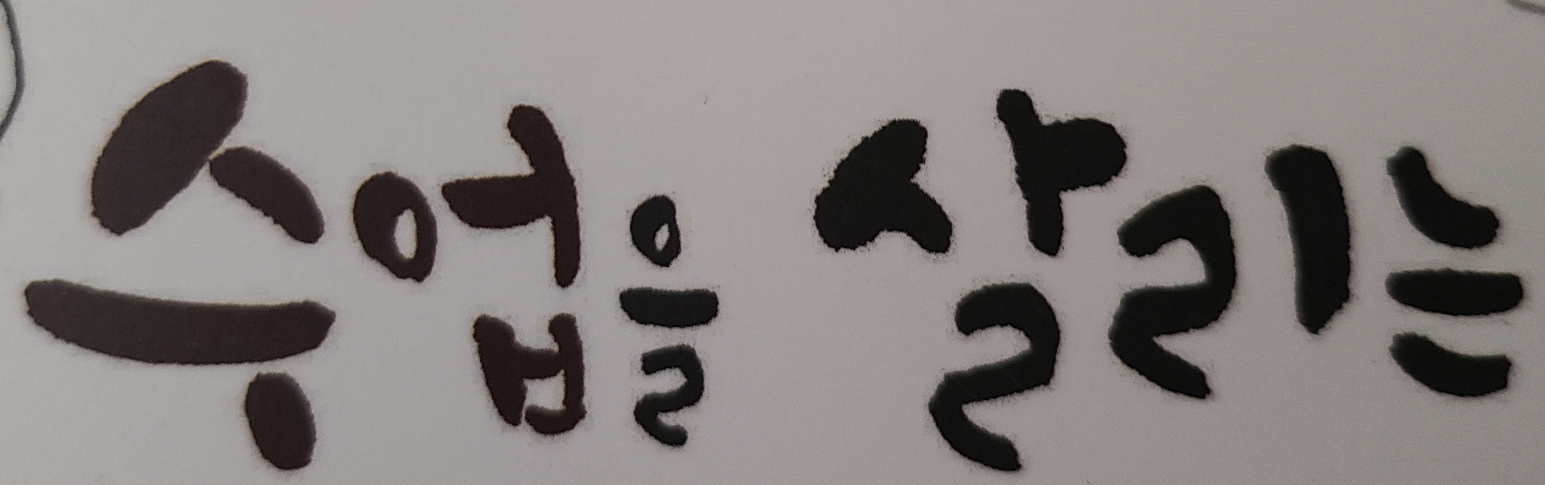 수업을 살리는